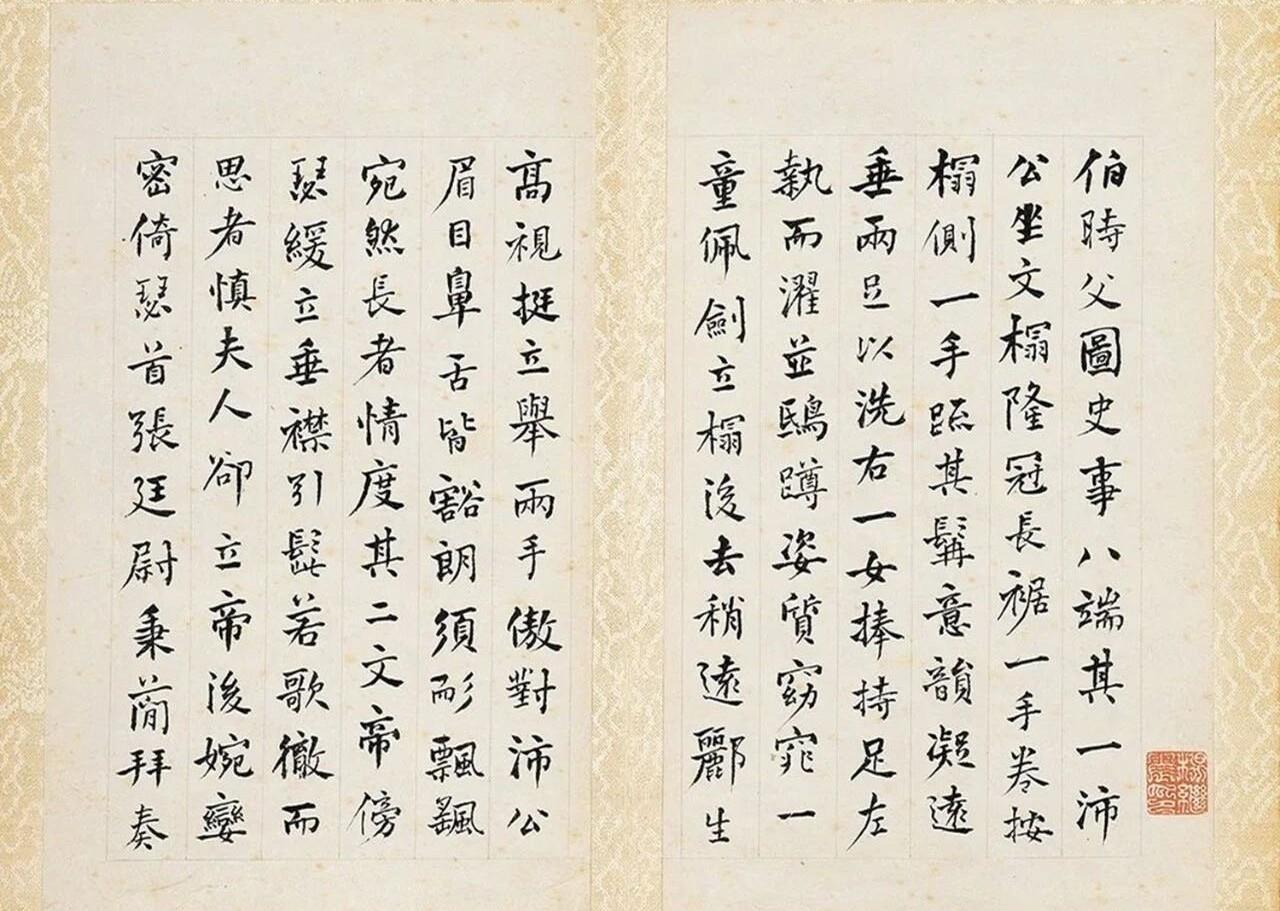 伯時父圖史事八端其一沛
公坐文榻隆冠長裾一手卷按
榻側一手跖其髯意韻凝遠
垂兩足以洗右一女捧持足左
執而濯並鴟蹲姿質窈窕一
童佩劍立榻後去稍遠酈生
高視挺立舉兩手傲對沛公
眉目鼻舌皆豁朗須耏飄飄
宛然長者情度其二文帝傍
瑟緩立垂襟引髭若歌徹而
思者慎夫人卻立帝後婉孌
密倚瑟首張廷尉秉蕳拜奏